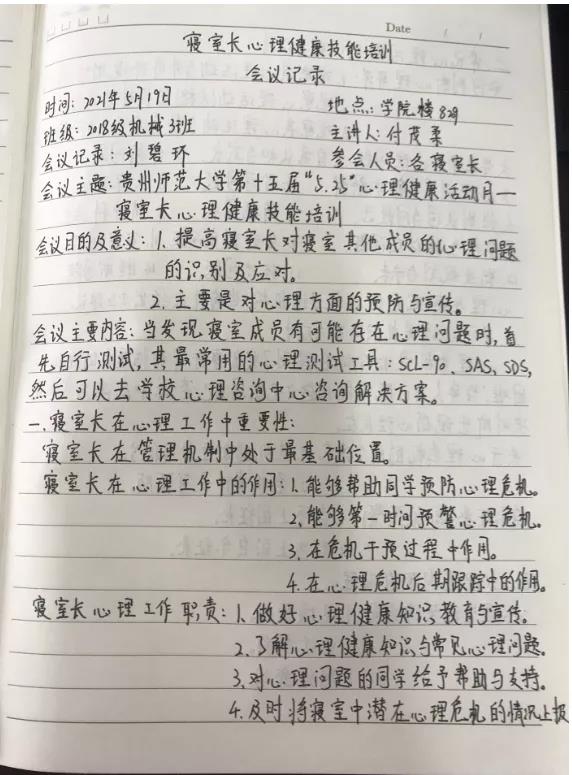 Date / /
寝室长心理健康技能培训
会议记录
时间：2021年5月19日 地点：学院楼829
班级：2018级机械3班 主讲人：付茂柔
会议记录：刘碧环 参会人员：各寝室长
会议主题：贵州师范大学第十五届“5.25”心理健康活动月一
寝室长心理健康技能培训
会议目的及意义：1.提高寝室长对寝室其他成员的心理问题
的识别及应对。
2.主要是对心理方面的预防与宣传。
会议主要内容：当发现寝室成员有可能存在心理问题时，首
先自行测试，其最常用的心理测试工具：SCL-90、SAS、SDS，
然后可以去学校心理咨询中心咨询解决方案。
一.寝室长在心理工作中重要性：
寝室长在管理机制中处于最基础位置。
寝室长在心理工作中的作用：1.能够帮助同学预防心理危机。
2.能够第一时间预警心理危机。
3.在危机干预过程中作用。
4.在心理危机后期跟踪中的作用。
寝室长心理工作职责：1.做好心理健康知识教育与宣传。
2.了解心理健康知识与常见心理问题。
3.对心理问题的同学给予帮助与支持。
4.及时将寝室中潜在心理危机的情况上报